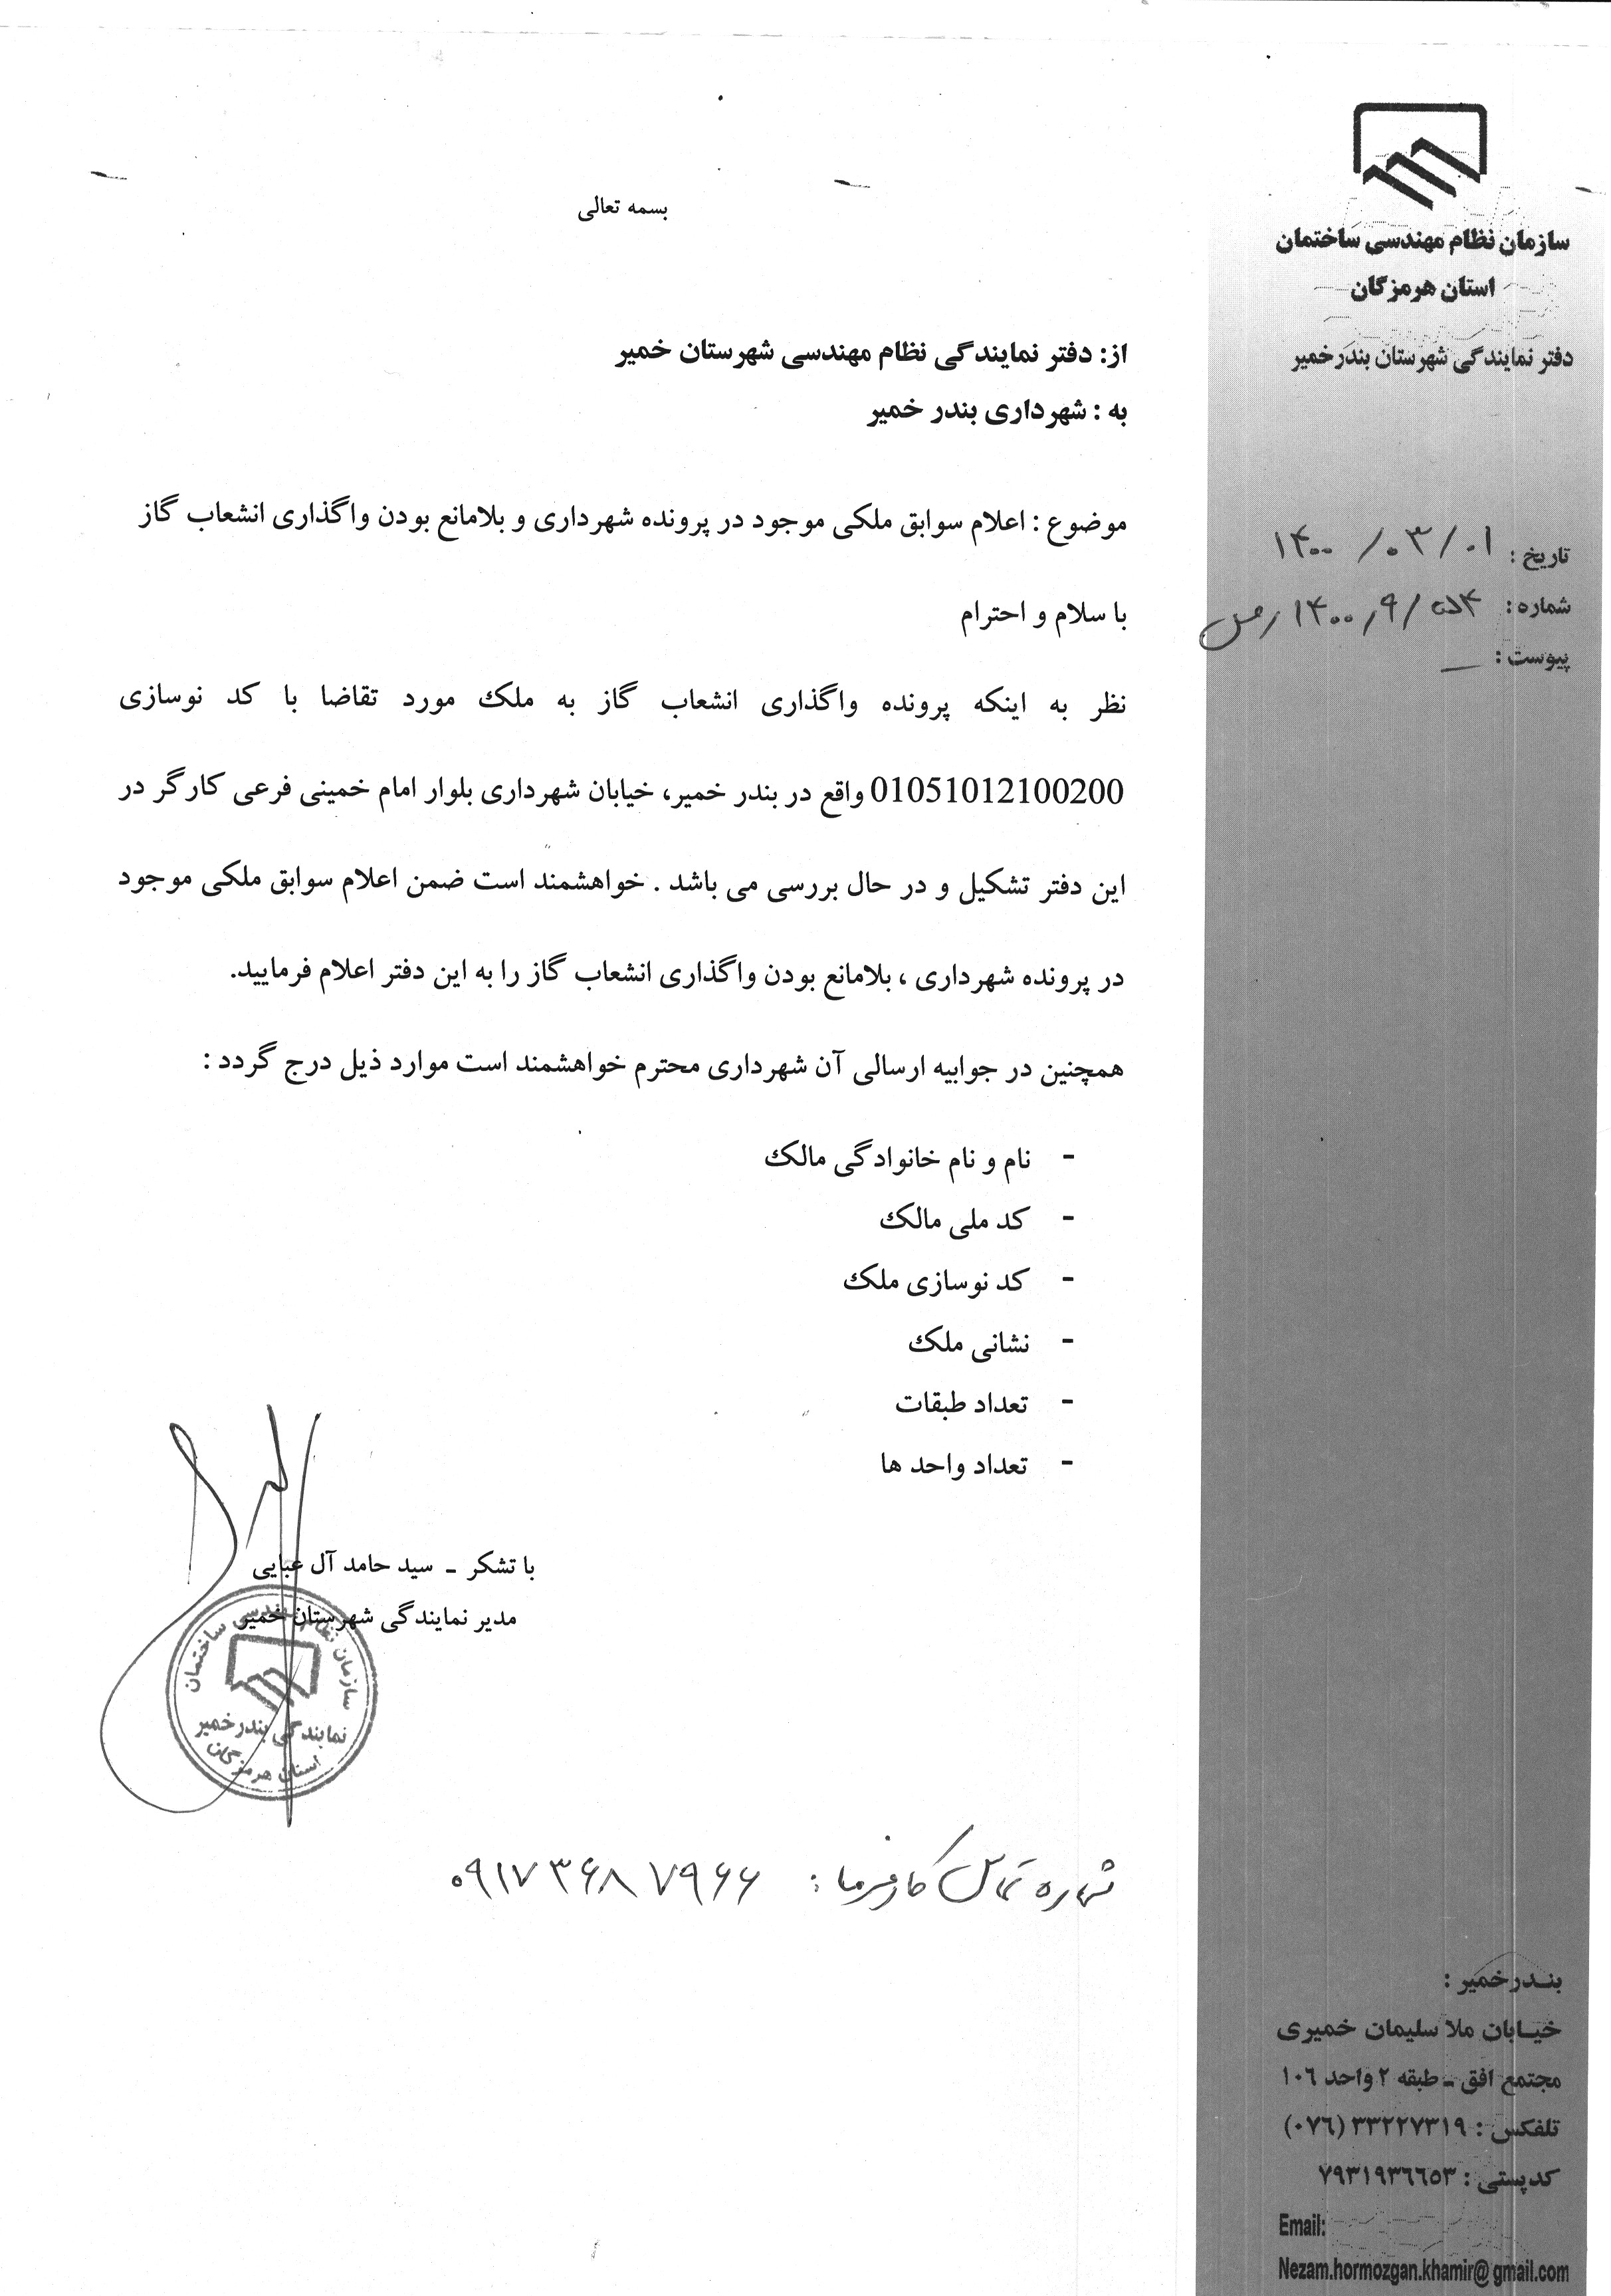 سازمان نظام مهندسی ساختمان
استان هرمزگان
دفتر نمایندگی شهرستان بندرخمیر
تاریخ : ۱۴۰۰/۰۳/۰۱
شماره :
پیوست : ـ
بسمه تعالی
از: دفتر نمایندگی نظام مهندسی شهرستان خمیر
به : شهرداری بندر خمیر
موضوع : اعلام سوابق ملکی موجود در پرونده شهرداری و بلامانع بودن واگذاری انشعاب گاز
با سلام و احترام
نظر به اینکه پرونده واگذاری انشعاب گاز به ملک مورد تقاضا با کد نوسازی
01051012100200 واقع در بندر خمیر، خیابان شهرداری بلوار امام خمینی فرعی کارگر در
این دفتر تشکیل و در حال بررسی می باشد . خواهشمند است ضمن اعلام سوابق ملکی موجود
در پرونده شهرداری ، بلامانع بودن واگذاری انشعاب گاز را به این دفتر اعلام فرمایید.
همچنین در جوابیه ارسالی آن شهرداری محترم خواهشمند است موارد ذیل درج گردد :
- نام و نام خانوادگی مالک
- کد ملی مالک
- کد نوسازی ملک
- نشانی ملک
- تعداد طبقات
- تعداد واحد ها
با تشکر ـ سید حامد آل عبایی
مدیر نمایندگی شهرستان خمیر
سازمان نظام مهندسی ساختمان
نمایندگی بندرخمیر
استان هرمزگان
شماره تماس کارفرما : ۰۹۱۷۳۶۸۷۹۶۶
بندرخمیر :
خیابان ملا سلیمان خمیری
مجتمع افق ـ طبقه ۲ واحد ۱۰۶
تلفکس : ۳۳۲۲۷۳۱۹ (۰۷۶)
کدپستی : ۷۹۳۱۹۳۶۶۵۳
Email:
Nezam.hormozgan.khamir@gmail.com